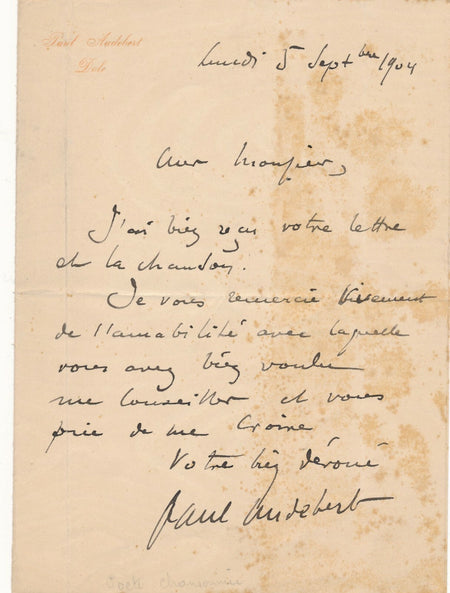 Paul Audebert
Dole
Lundi 5 Sept bre 1904
Cher Monsieur,
J'ai bien reçu votre lettre
et la chanson.
Je vous remercie vivement
de l'amabilité avec laquelle
vous avez bien voulu
me conseiller et vous
prie de me croire
Votre bien dévoué
Paul Audebert
Poète chansonnier